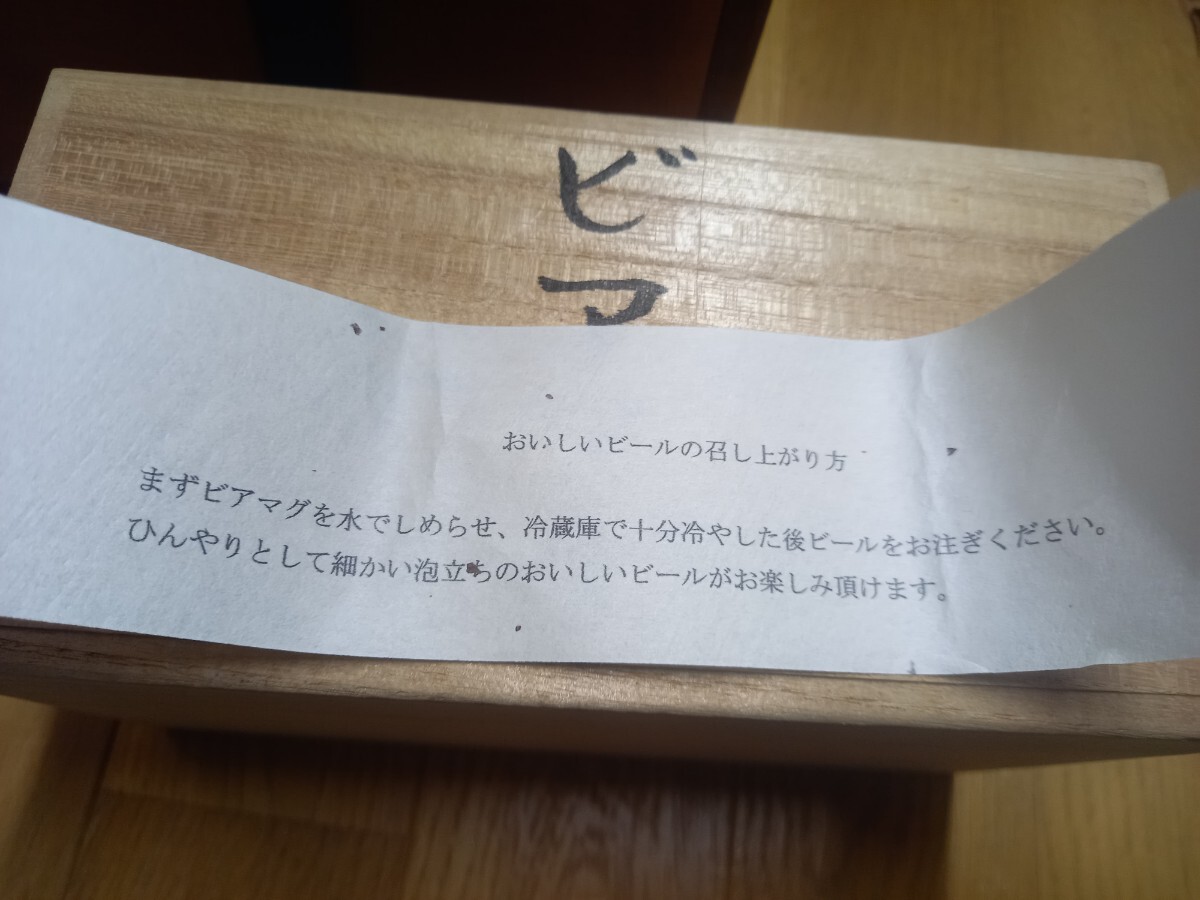 ビア
おいしいビールの召し上がり方
まずビアマグを水でしめらせ、冷蔵庫で十分冷やした後ビールをお注ぎください。
ひんやりとして細かい泡立ちのおいしいビールがお楽しみ頂けます。